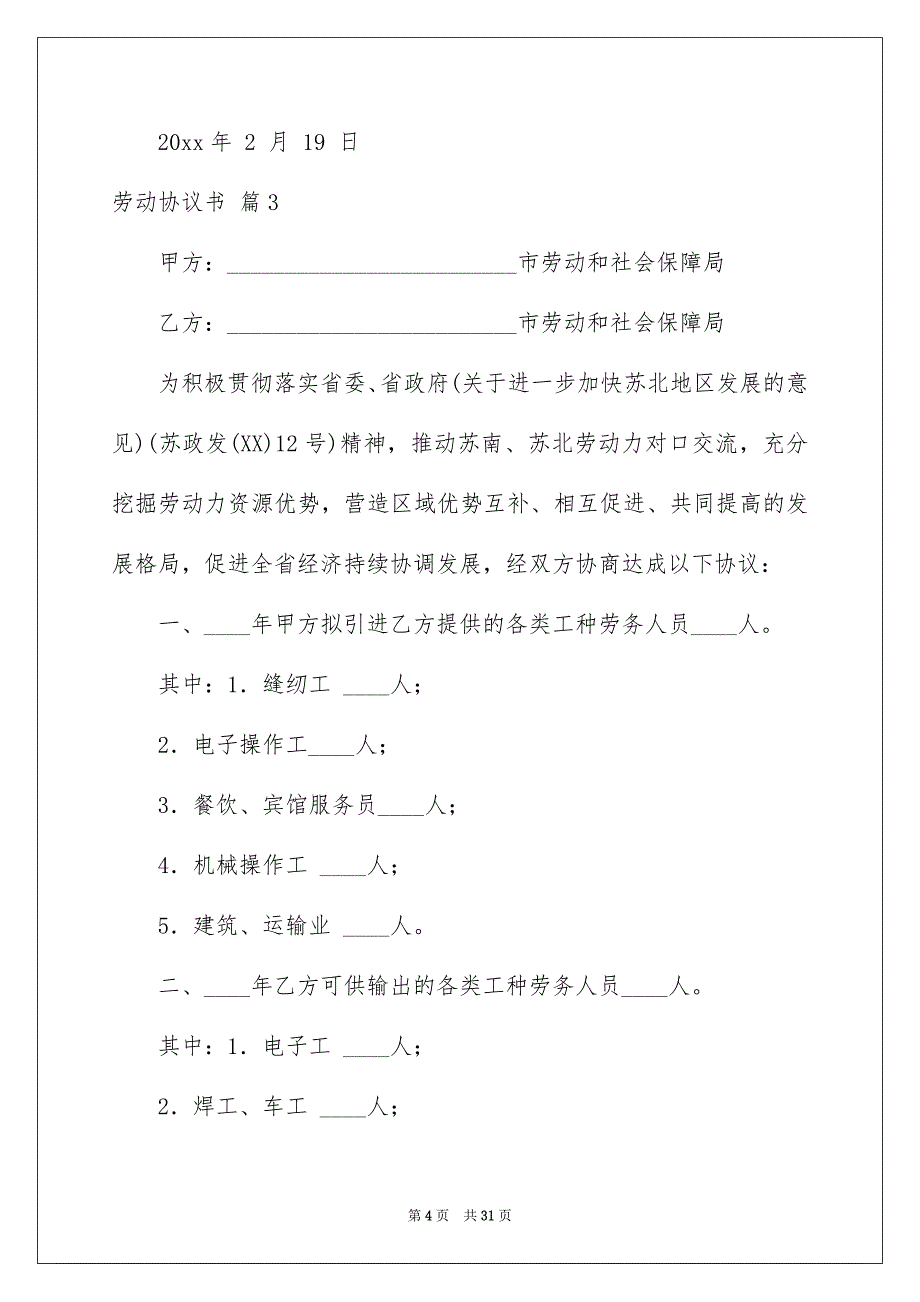 20xx年 2 月 19 日
劳动协议书 篇3
甲方：_________________________市劳动和社会保障局
乙方：_________________________市劳动和社会保障局
为积极贯彻落实省委、省政府(关于进一步加快苏北地区发展的意
见)(苏政发(XX)12号)精神，推动苏南、苏北劳动力对口交流，充分
挖掘劳动力资源优势，营造区域优势互补、相互促进、共同提高的发
展格局，促进全省经济持续协调发展，经双方协商达成以下协议：
一、____年甲方拟引进乙方提供的各类工种劳务人员____人。
其中：1．缝纫工 ____人；
2．电子操作工____人；
3．餐饮、宾馆服务员____人；
4．机械操作工 ____人；
5．建筑、运输业 ____人。
二、____年乙方可供输出的各类工种劳务人员____人。
其中：1．电子工 ____人；
2．焊工、车工 ____人；
第 4 页 共 31 页